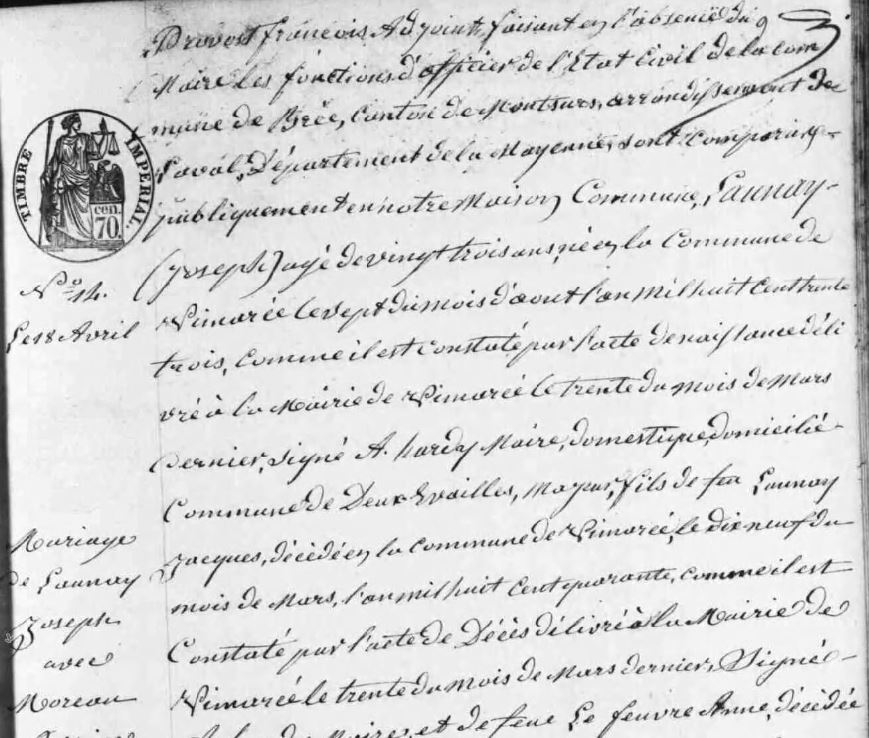 Provost françois Adjoint, faisant en l'absence du
Maire les fonctions d'officier de l'Etat Civil de la com
mune de Brée, Canton de Montsurs, arrondissement de
Laval, Département de la Mayenne, sont comparus
publiquement en notre Maison Commune, Launay
(Joseph) agé de vingt trois ans, né en la Commune de
Vimarcé le sept du mois d'aout l'an mil huit cent trente
trois, comme il est constaté par l'acte de naissance déli
vré à la Mairie de Vimarcé le trente du mois de Mars
dernier, signé A. hardy Maire, domestique, domicilié
Commune de Deux Evailles, majeur, fils de feu Launay
Jacques, décédé en la commune de Vimarcé, le dix neuf du
mois de Mars, l'an mil huit cent quarante, comme il est
Constaté par l'acte de Décès délivré à la Mairie de
Vimarcé le trente du mois de Mars dernier, Signé
Maire, et de feue Le feuvre Anne, décédée
TIMBRE IMPERIAL.
cen.
70
N.º 14.
Le 18 Avril
Mariage
de Launay
Joseph
avec
Moreau